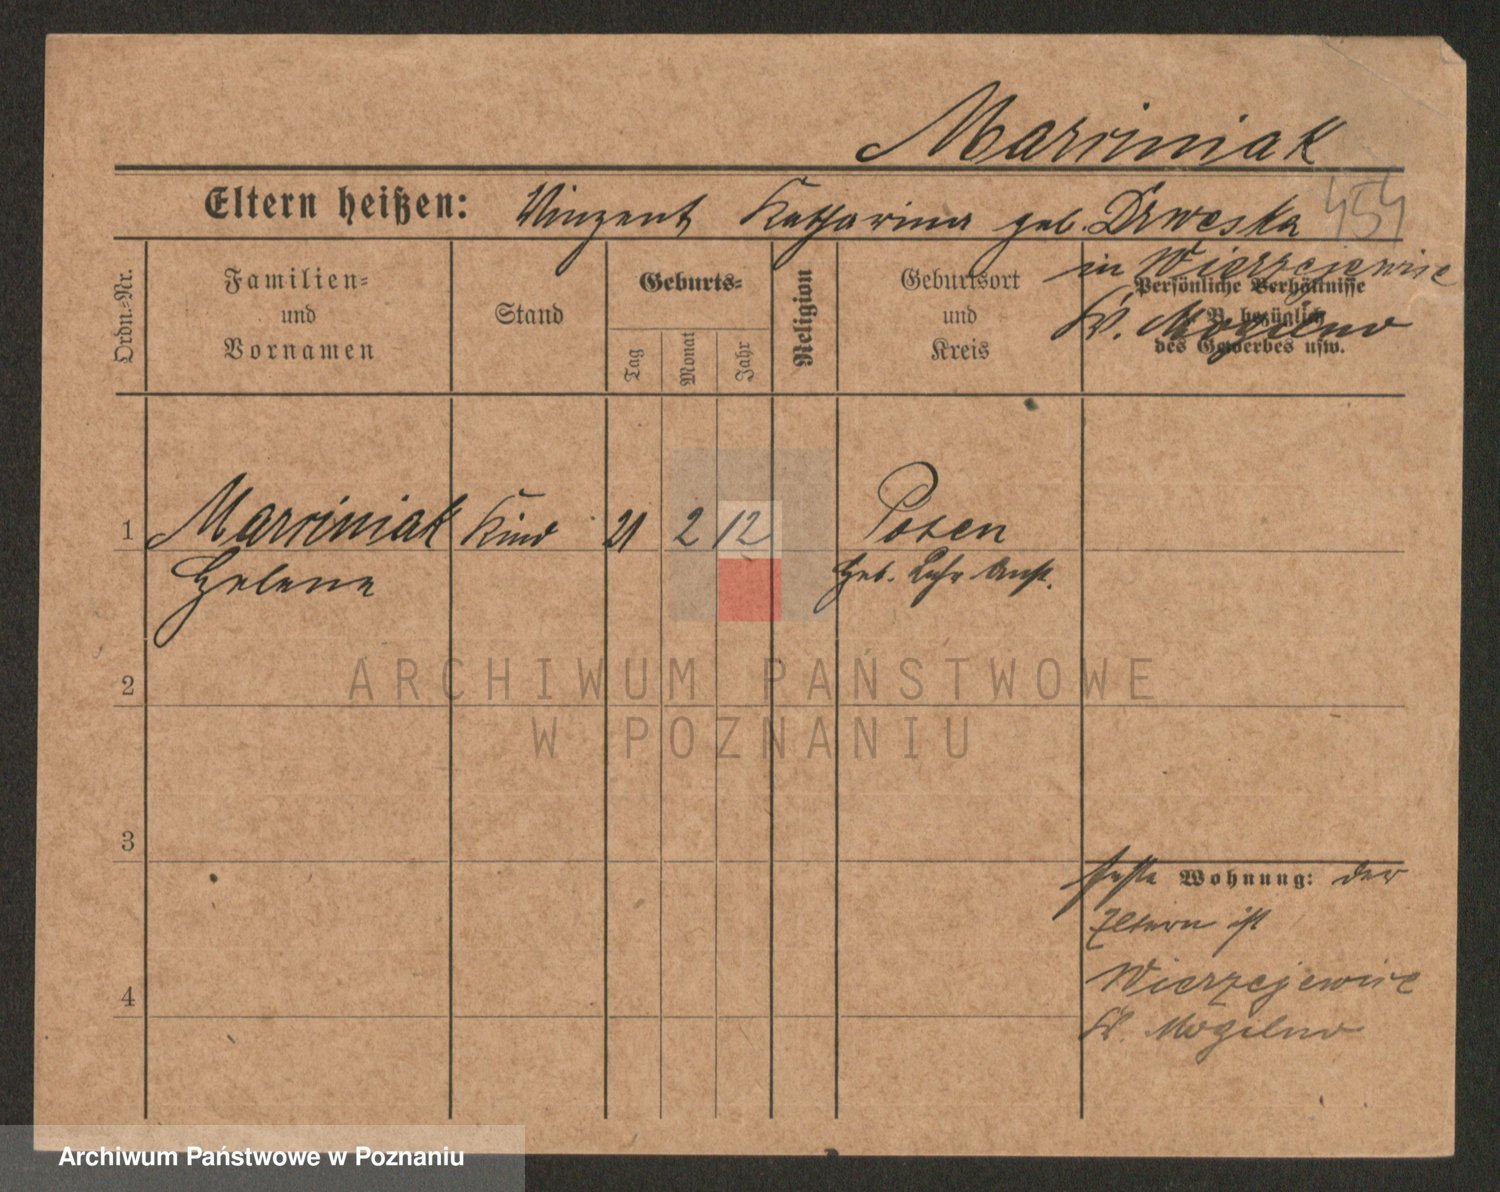 Marciniak
Eltern heißen: Vinzent Katharina geb. Drweska
454
in Wierzejewice
Kr. Mogilno
Ordn.-Nr.
Familien-
und
Vornamen
Stand
Geburts-
Tag
Monat
Jahr
Religion
Geburtsort
und
Kreis
Persönliche Verhältnisse
B. bezüglich
des Gewerbes usw.
1 Marciniak Kind 21 2 12 Posen
Helene Heb. Lehr Anst.
2
3
4
feste Wohnung: der
Eltern ist
Wierzejewice
Kr. Mogilno
ARCHIWUM PAŃSTWOWE
W POZNANIU
Archiwum Państwowe w Poznaniu